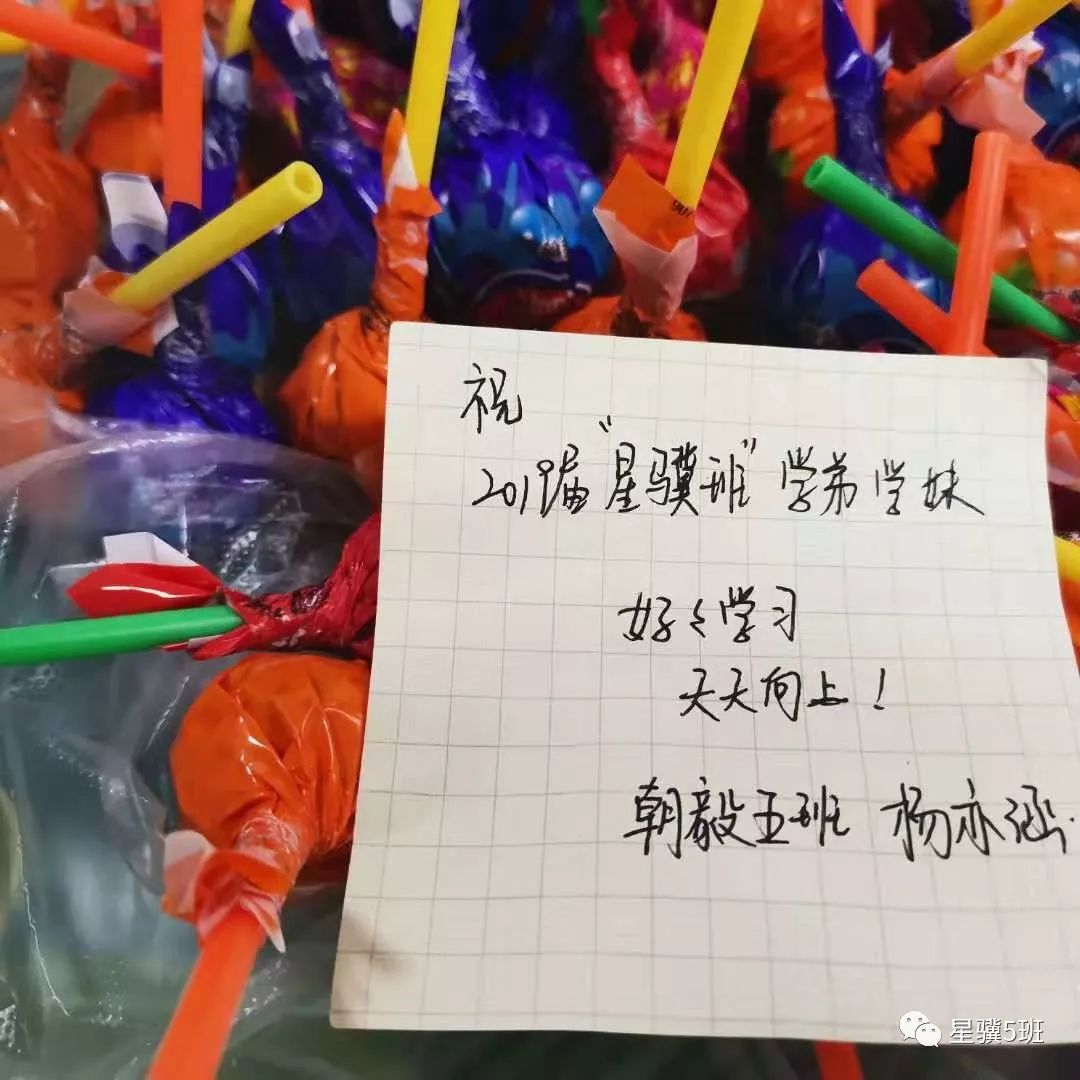 祝
2019届“星骥班”学弟学妹
好々学习
天天向上！
朝毅五班 杨亦涵.
星骥5班